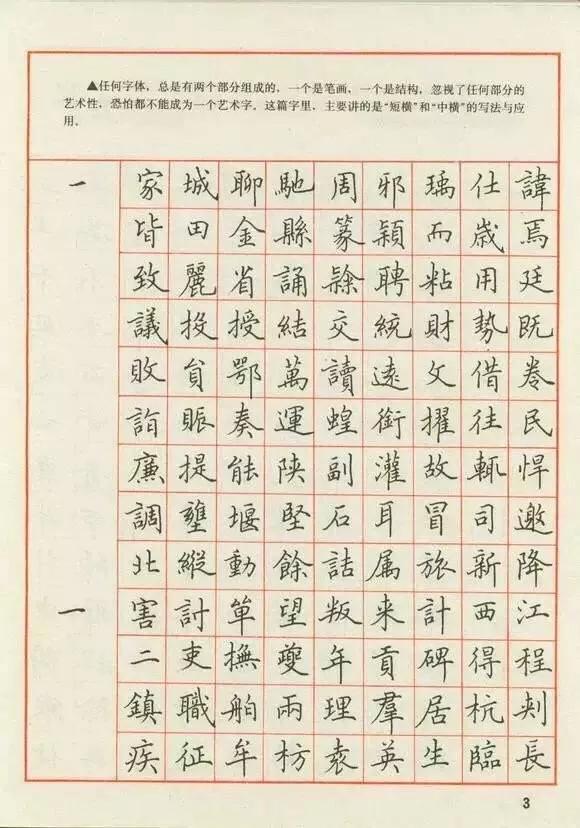 ▲任何字体，总是有两个部分组成的，一个是笔画，一个是结构，忽视了任何部分的
艺术性，恐怕都不能成为一个艺术字。这篇字里，主要讲的是“短横”和“中横”的写法与应
用。
一 家 城 聊 馳 周 邪 瑀 仕 諱
皆 田 金 縣 篆 穎 而 歲 焉
致 麗 省 誦 聘 粘 用 廷
議 投 授 結 交 統 財 勢 既
敗 貟 鄂 萬 讀 遠 文 借 卷
詣 賑 奏 運 蝗 銜 擢 往 民
廉 提 能 陝 副 灌 故 輒 悍
調 壅 堰 堅 石 耳 冒 司 邀
北 縱 動 餘 詰 属 旅 新 降
一 害 討 单 望 叛 来 計 西 江
二 吏 撫 夔 年 貢 碑 得 程
鎮 職 舶 兩 理 羣 居 杭 刺
疾 征 牟 枋 袁 英 生 臨 長
3